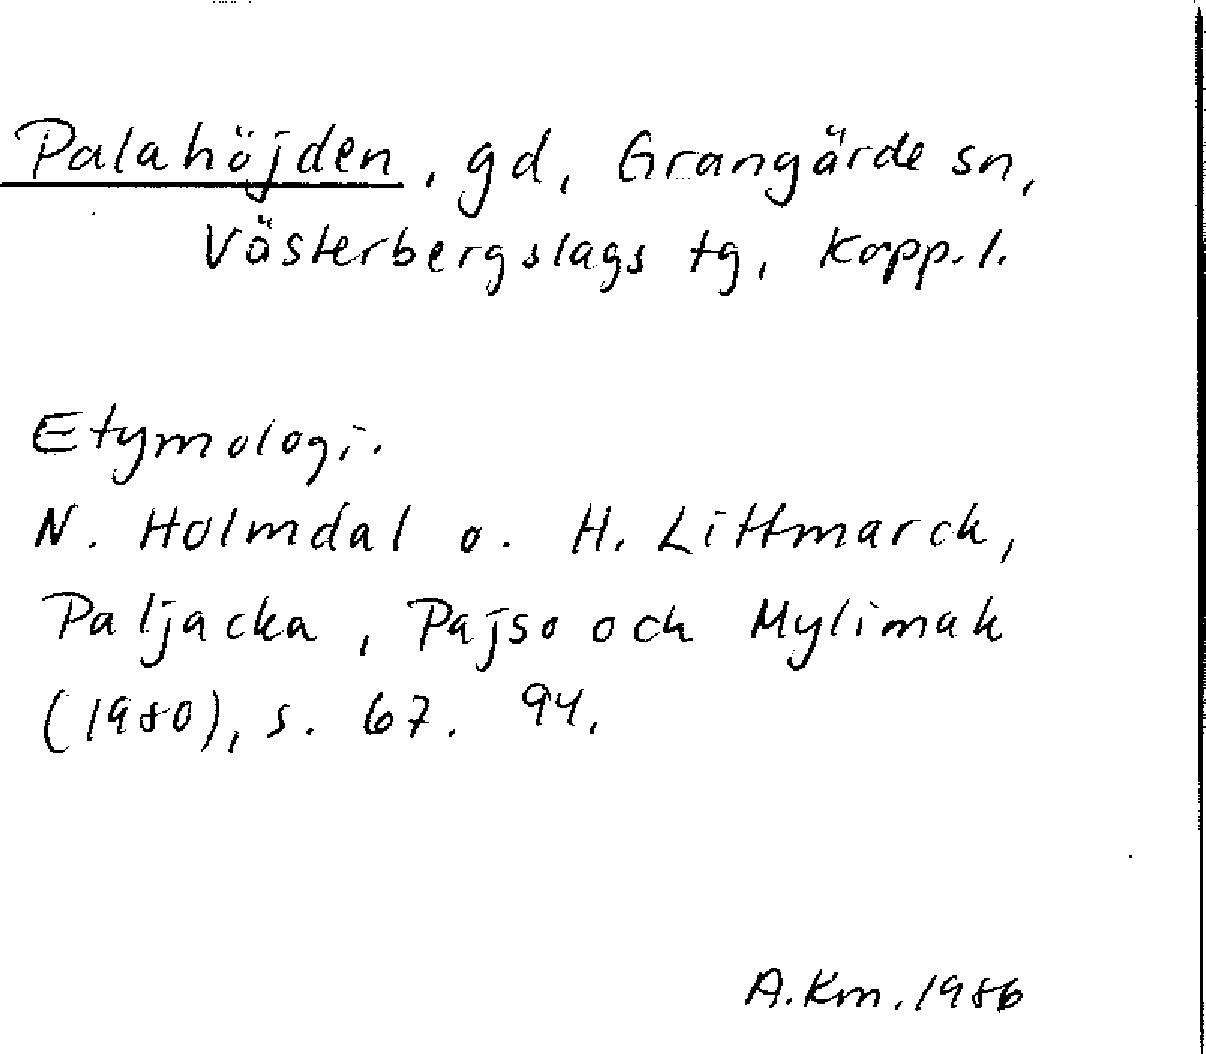 Palahöjden, gd, Grangärde sn,
Västerbergslags tg, Kopp. l.
Etymologi.
N. Holmdal o. H. Littmarck,
Paljacka, Pajso och Mylimak
(1980), s. 67. 94.
A. Km. 1986